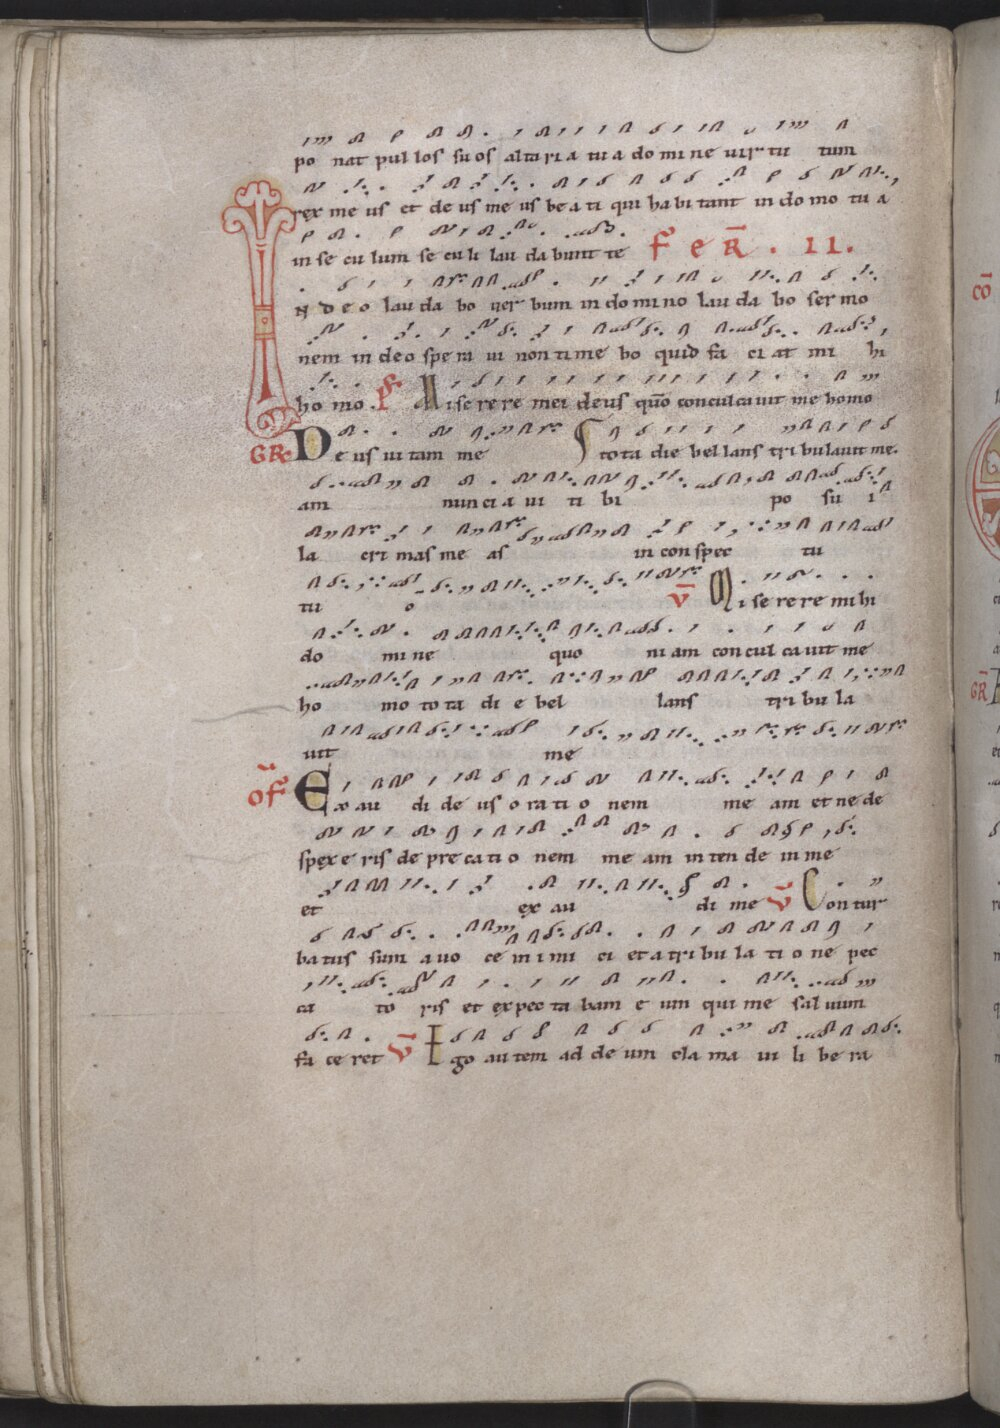 po nat pul los su os altaria tu a do mi ne uir tu tum
rex me us et de us me us be a ti qui ha bi tant in do mo tu a
in se cu lum se cu li lau da bunt te FeR. II.
IN D e o lau da bo uer bum in do mi no lau da bo ser mo
nem in de o spe ra ui non ti me bo quid fa ci at mi hi
ho mo. Ps Mi se re re mei deus quo conculcauit me homo
GR. De us ui tam me tota die bel lans tri bulauit me.
am nun ci a ui ti bi po su i
la cri mas me as in con spec tu
tu o V Mi se re re mi hi
do mi ne quo ni am con cul ca uit me
ho mo to ta di e bel lans tri bu la
uit me
of Ex au di de us o ra ti o nem me am et ne de
spex e ris de pre ca ti o nem me am in ten de in me
et ex au di me V Con tur
ba tus sum a uo ce in i mi ci et a tri bu la ti o ne pec
ca to ris et ex pec ta bam e um qui me sal uum
fa ce ret V Ego au tem ad de um cla ma ui li be ra